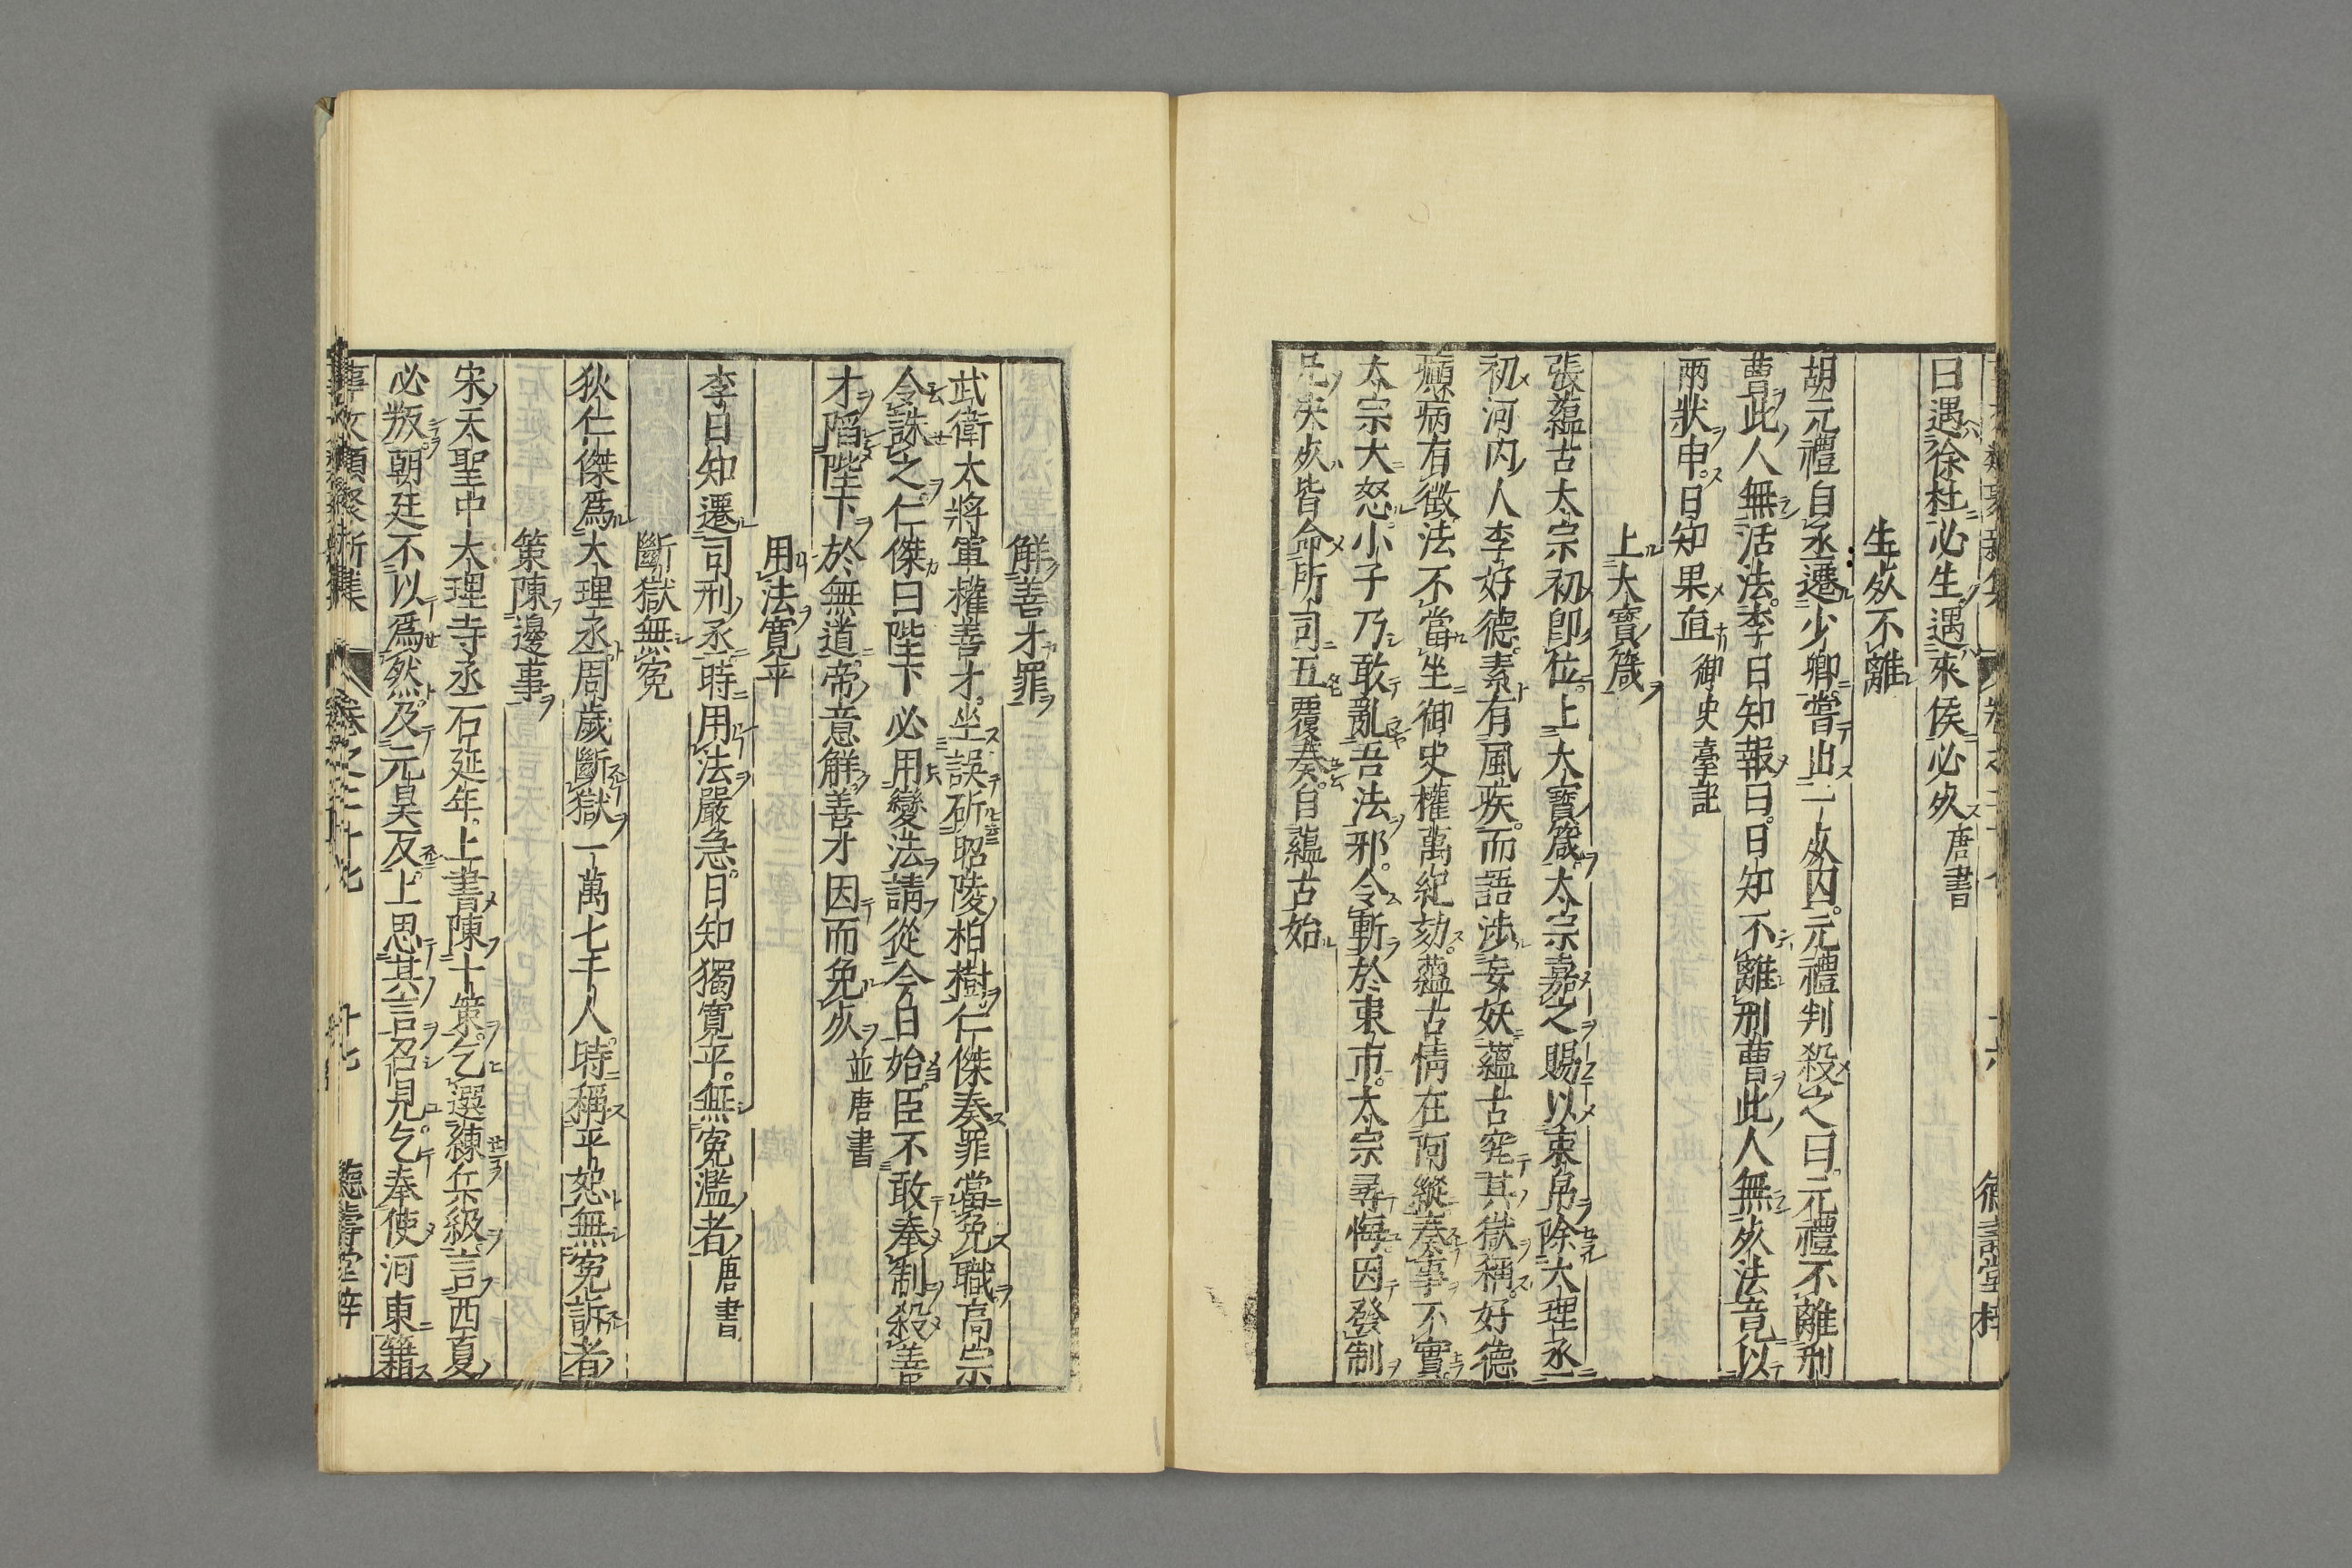 曰遇徐杜必生遇來侯必死唐書
生死不離
胡元禮自丞遷少卿嘗出一死囚元禮判殺之曰元禮不離刑
曹此人無活法李日知報曰日知不離刑曹此人無死法竟以
兩狀申日知果直御史臺記
上大寶箴
張蘊古太宗初卽位上大寶箴太宗嘉之賜以束帛除大理丞
初河内人李好德素有風疾而語涉妄妖蘊古究其獄稱好德
癲病有徵法不當坐御史權萬紀劾蘊古情在阿縱奏事不實
太宗大怒小子乃敢亂吾法邪令斬於東市太宗尋悔因發制
凡決死皆命所司五覆奏自蘊古始
解善才罪
武衛大將軍權善才坐誤斫昭陵柏樹仁傑奏罪當免職高宗
令誅之仁傑曰陛下必用變法請從今日始臣不敢奉制殺善
才陷陛下於無道帝意解善才因而免死並唐書
用法寬平
李日知遷司刑丞時用法嚴急日知獨寬平無寃濫者唐書
斷獄無寃
狄仁傑爲大理丞周歲斷獄一萬七千人時稱平恕無寃訴者
策陳邊事
宋天聖中大理寺丞石延年上書陳十策乞選練兵級言西夏
必叛朝廷不以爲然及元昊反上思其言召見乞奉使河東籍
事文類聚新集 卷之二十七 十七 德壽堂梓